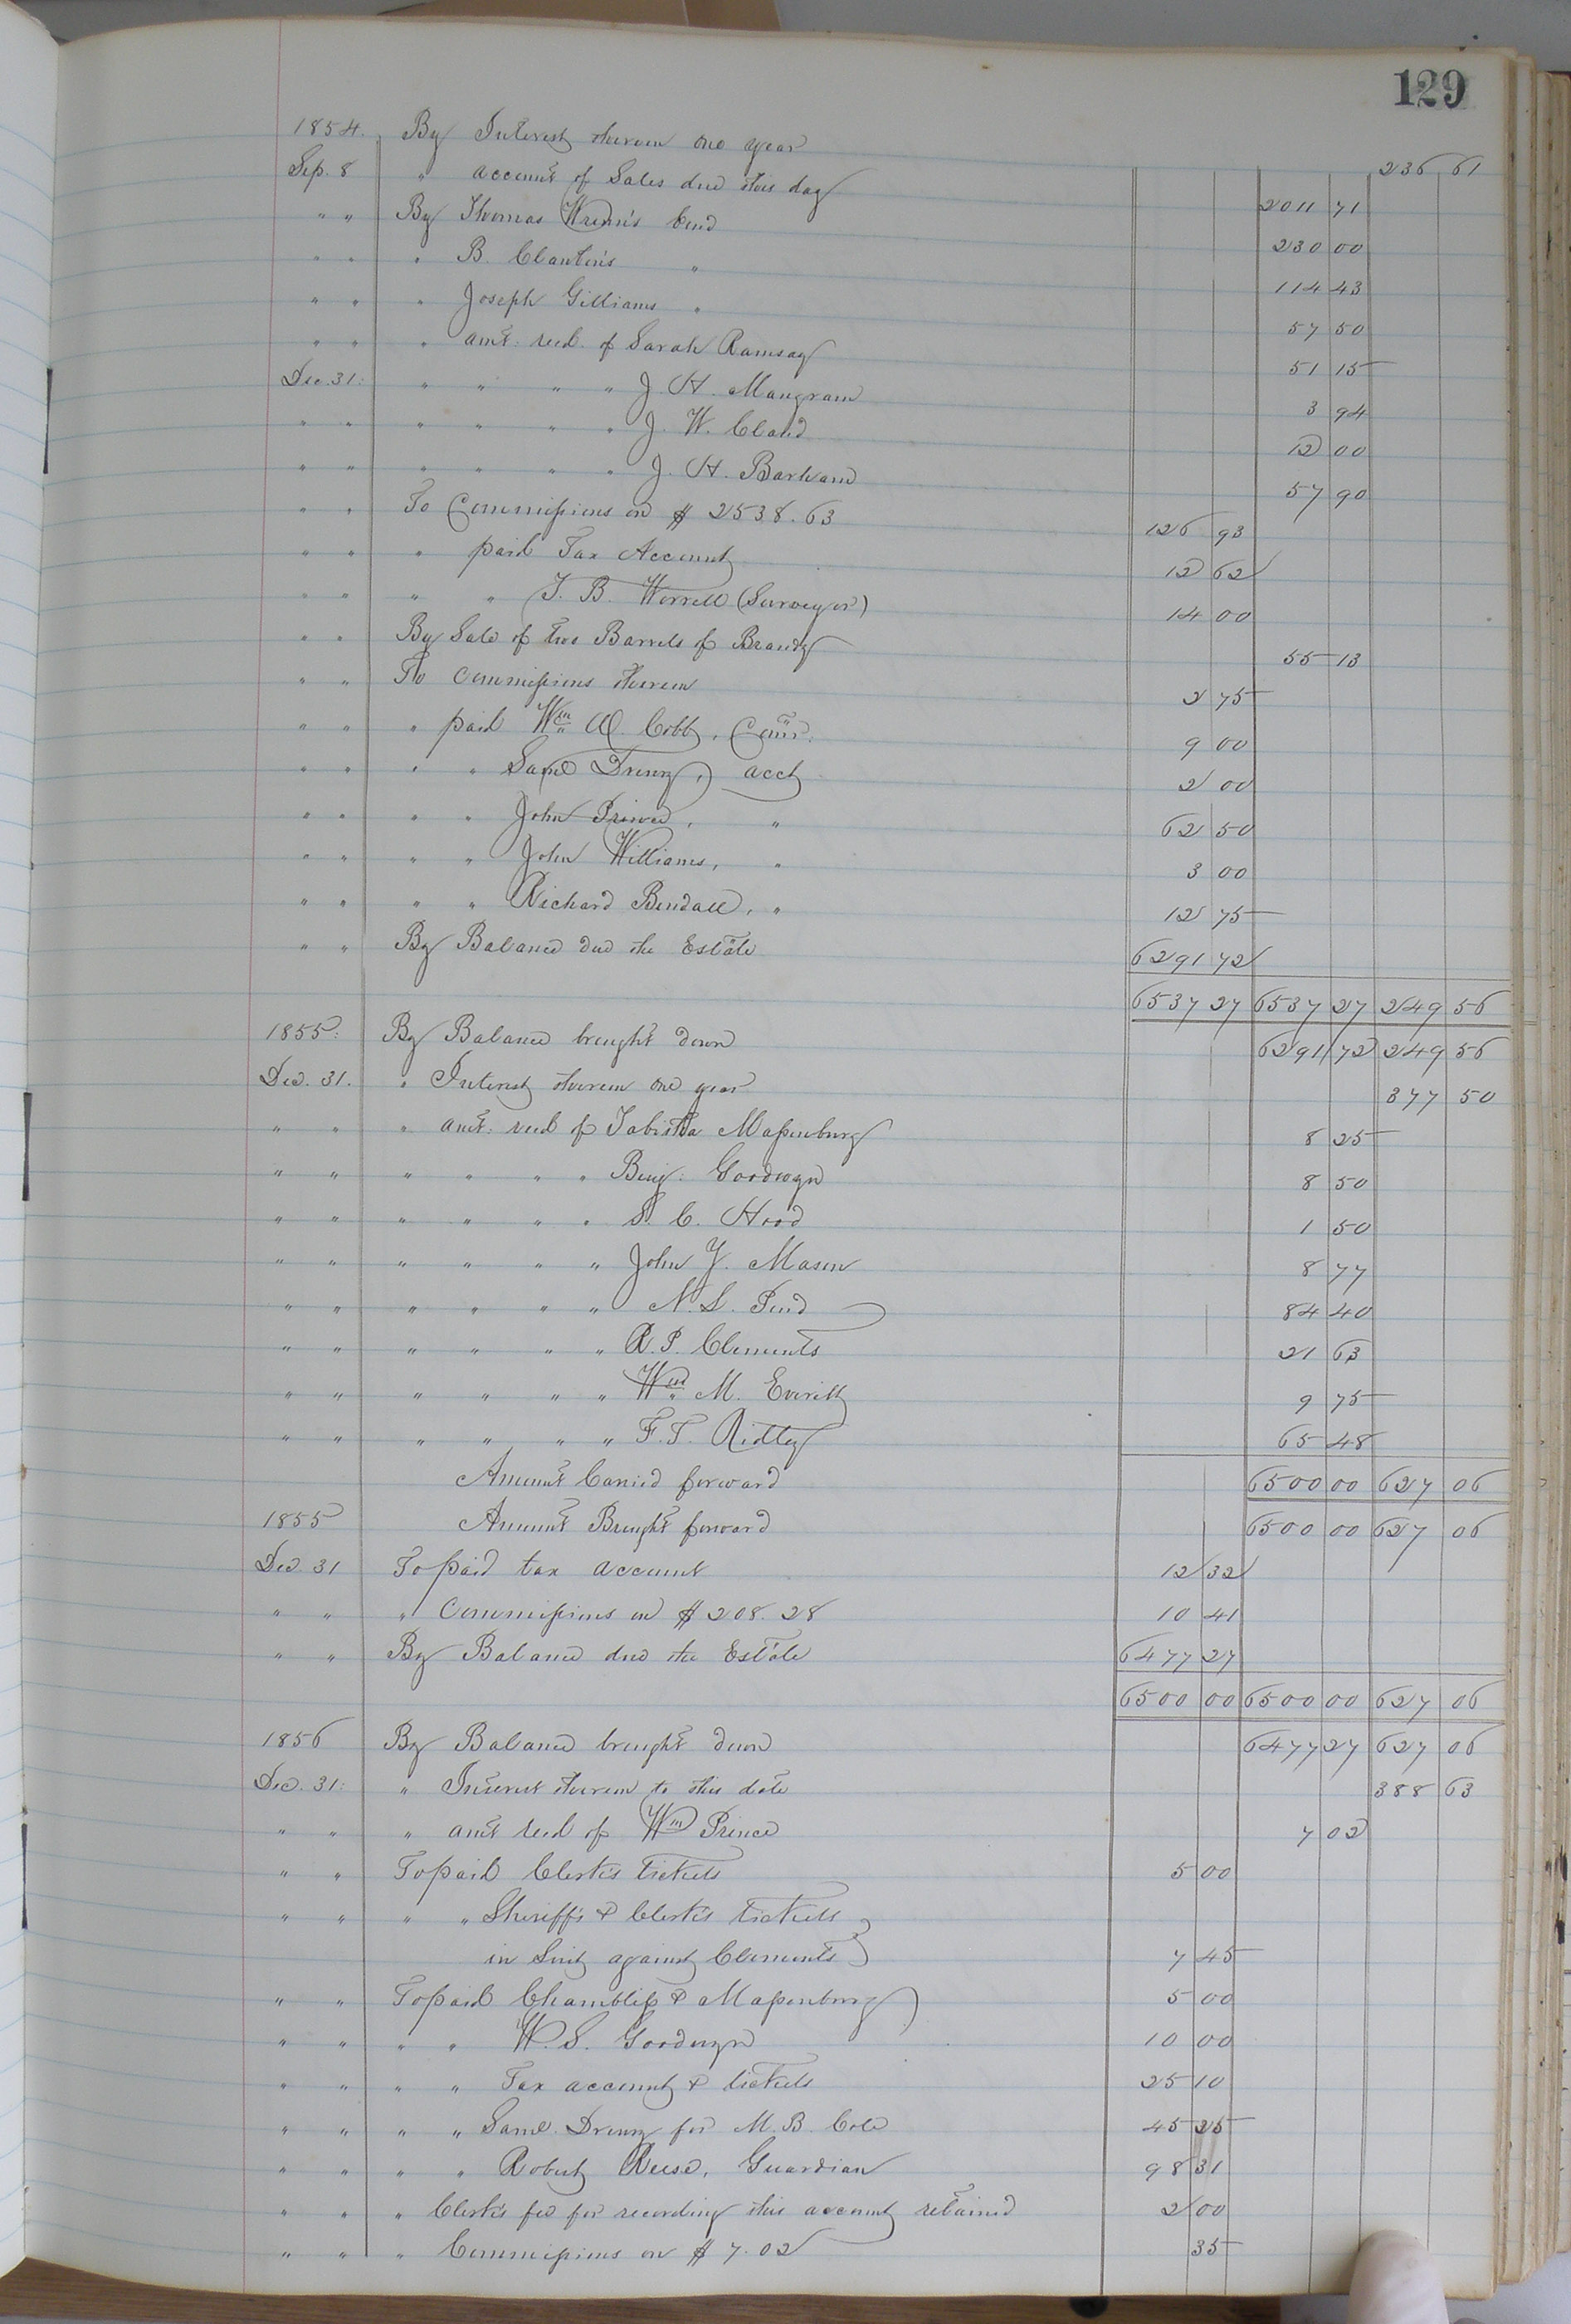 129
1854. By Interest thereon one year 236 61
Sep. 8 " account of Sales due this day 2011 71
" " By Thomas Wrenn's bond 230 00
" " " B. Clanton's " 114 43
" " " Joseph Gilliams " 57 50
" " " amt: recd. of Sarah Ramsay 51 15
Dec. 31: " " " " J. H. Mangram 3 94
" " " " " " J. W. Claud 12 00
" " " " " " J. H. Barham 57 90
" " To Commissions on $ 2538.63 126 93
" " " paid Tax Account 12 62
" " " " T. B. Worrell (Surveyor) 14 00
" " By Sale of two Barrels of Brandy 55 13
" " To Commissions thereon 2 75
" " " paid Wm A. Cobb, Comr. 9 00
" " " " Saml Drewry, acct 2 00
" " " " John Prince, " 62 50
" " " " John Williams, " 3 00
" " " " Richard Bendall, " 12 75
" " By Balance due the Estate 6291 72
6537 27 6537 27 249 56
1855: By Balance brought down 6291 72 249 56
Dec. 31. " Interest thereon one year 377 50
" " " amt: recd of Tabitha Massenburg 8 25
" " " " " " Benj: Goodwyn 8 50
" " " " " " S. C. Hood 1 50
" " " " " " John Y. Mason 8 77
" " " " " " N. S. 84 40
" " " " " " R. P. Clements 21 63
" " " " " " Wm M. Everitt 9 75
" " " " " " F. T. Ridley 65 48
Amount Carried forward 6500 00 627 06
1855 Amount Brought forward 6500 00 627 06
Dec. 31 To paid tax account 12 32
" " " Commissions on $ 208.28 10 41
" " By Balance due the Estate 6477 27
6500 00 6500 00 627 06
1856 By Balance brought down 6477 27 627 06
Dec. 31: " Interest thereon to this date 388 63
" " " amt recd of Wm Prince 7 02
" " To paid Clerk's tickets 5 00
" " " " Sheriff's & Clerk's tickets
in Suit against Clements 7 45
" " To paid Chambliss & Massenburg 5 00
" " " " W. S. Goodwyn 10 00
" " " " Tax account & tickets 25 10
" " " " Saml. Drewry for M. B. Cole 45 25
" " " " Robert Reese, Guardian 98 31
" " " Clerk's fee for recording this account retained 2 00
" " " Commissions on $ 7.02 35